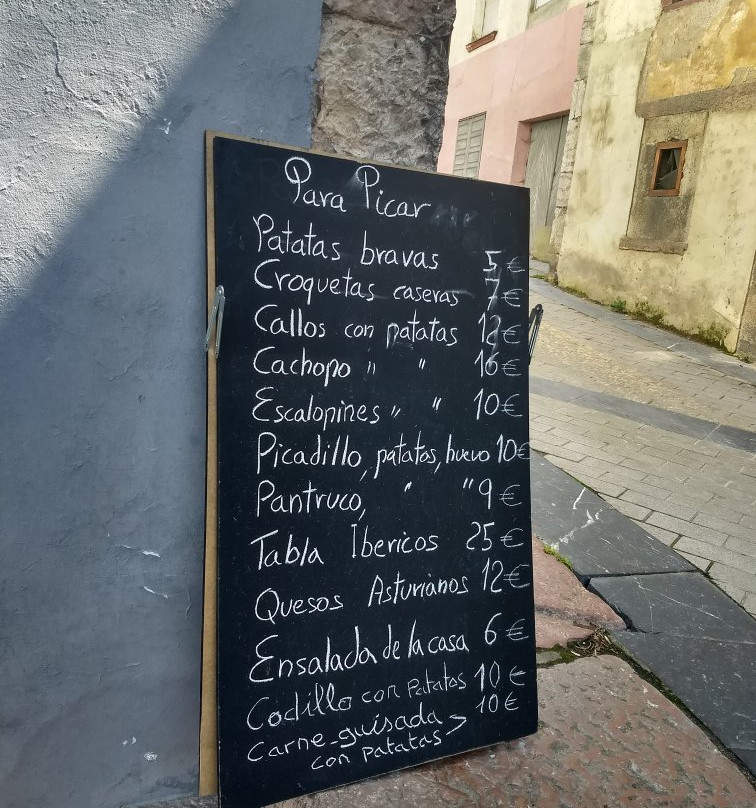 Para Picar
Patatas bravas 5€
Croquetas caseras 7€
Callos con patatas 12€
Cachopo " " 16€
Escalopines " " 10€
Picadillo, patatas, huevo 10€
Pantruco, " " 9€
Tabla Ibericos 25€
Quesos Asturianos 12€
Ensalada de la casa 6€
Codillo con Patatas 10€
Carne guisada > 10€
con Patatas